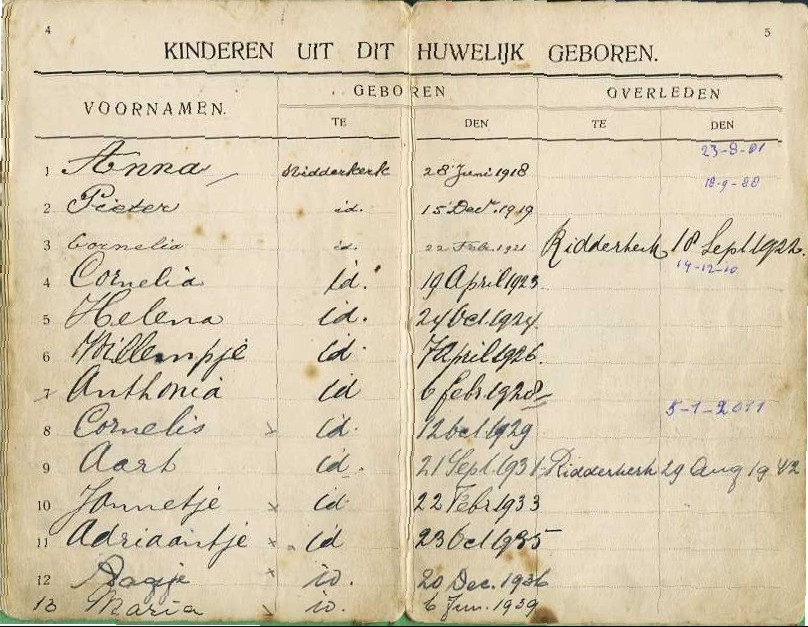 4 5
KINDEREN UIT DIT HUWELIJK GEBOREN.
VOORNAMEN. GEBOREN OVERLEDEN
TE DEN TE DEN
23-8-81
1 Anna Ridderkerk 28 Juni 1918
18-9-88
2 Pieter id. 15 Decr. 1919
3 Cornelia id. 22 Febr. 1921 Ridderkerk 18 Sept 1922.
14-12-10
4 Cornelia Id. 19 April 1923
5 Helena id. 24 Oct. 1924.
6 Willempje id. 7 April 1926.
7 Anthonia id 6 febr 1928
5-1-2011
8 Cornelis id. 12 Oct. 1929
9 Aart id. 21 Sept. 1931. Ridderkerk 29 Aug 1942
10 Jannetje x id 22 Febr 1933
11 Adriaantje x id 23 Oct 1935
12 x id. 20 Dec. 1936
13 Maria id. 6 Jun. 1939